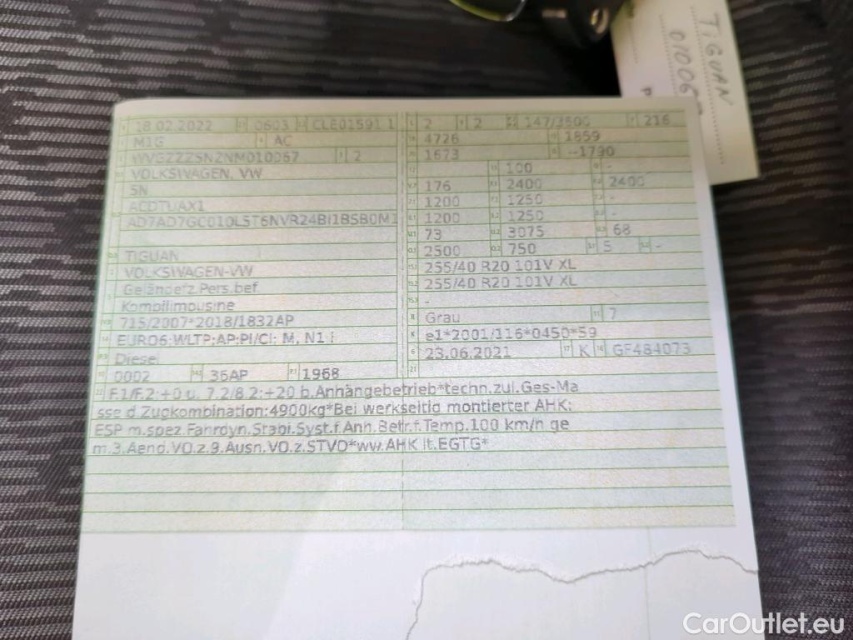 TIGUAN
01006
18.02.2022 0603 CLE01591 1 2 2 147/3500 216
M1G AC 4726 1859
WVGZZZ5NZNM010067 2 1673 --1790
VOLKSWAGEN, VW 100 -
5N 176 2400 2400
ACDTUAX1 1200 1250 -
AD7AD7GC010LST6NVR24BI1B5B0M1 1200 1250 -
73 3075 68
TIGUAN 2500 750 5 -
VOLKSWAGEN-VW 255/40 R20 101V XL
Geländefz.Pers.bef 255/40 R20 101V XL
Kombilimousine -
715/2007*2018/1832AP Grau 7
EURO6;WLTP;AP:PI/CI; M, N1 I e1*2001/116*0450*59
Diesel 23.06.2021 K GF484073
0002 36AP 1968
F1/F2:+0 u. 7.2/8.2:+20 b.Anhängebetrieb*techn.zul.Ges-Ma
sse d.Zugkombination:4900kg*Bei werkseitig montierter AHK:
ESP m.spez Fahrdyn.Stabi.Syst.f.Anh.Betr.f.Temp.100 km/h ge
m.3.Aend.VO.z.9.Ausn.VO.z.STVO*ww.AHK lt.EGTG*
CarOutlet.eu